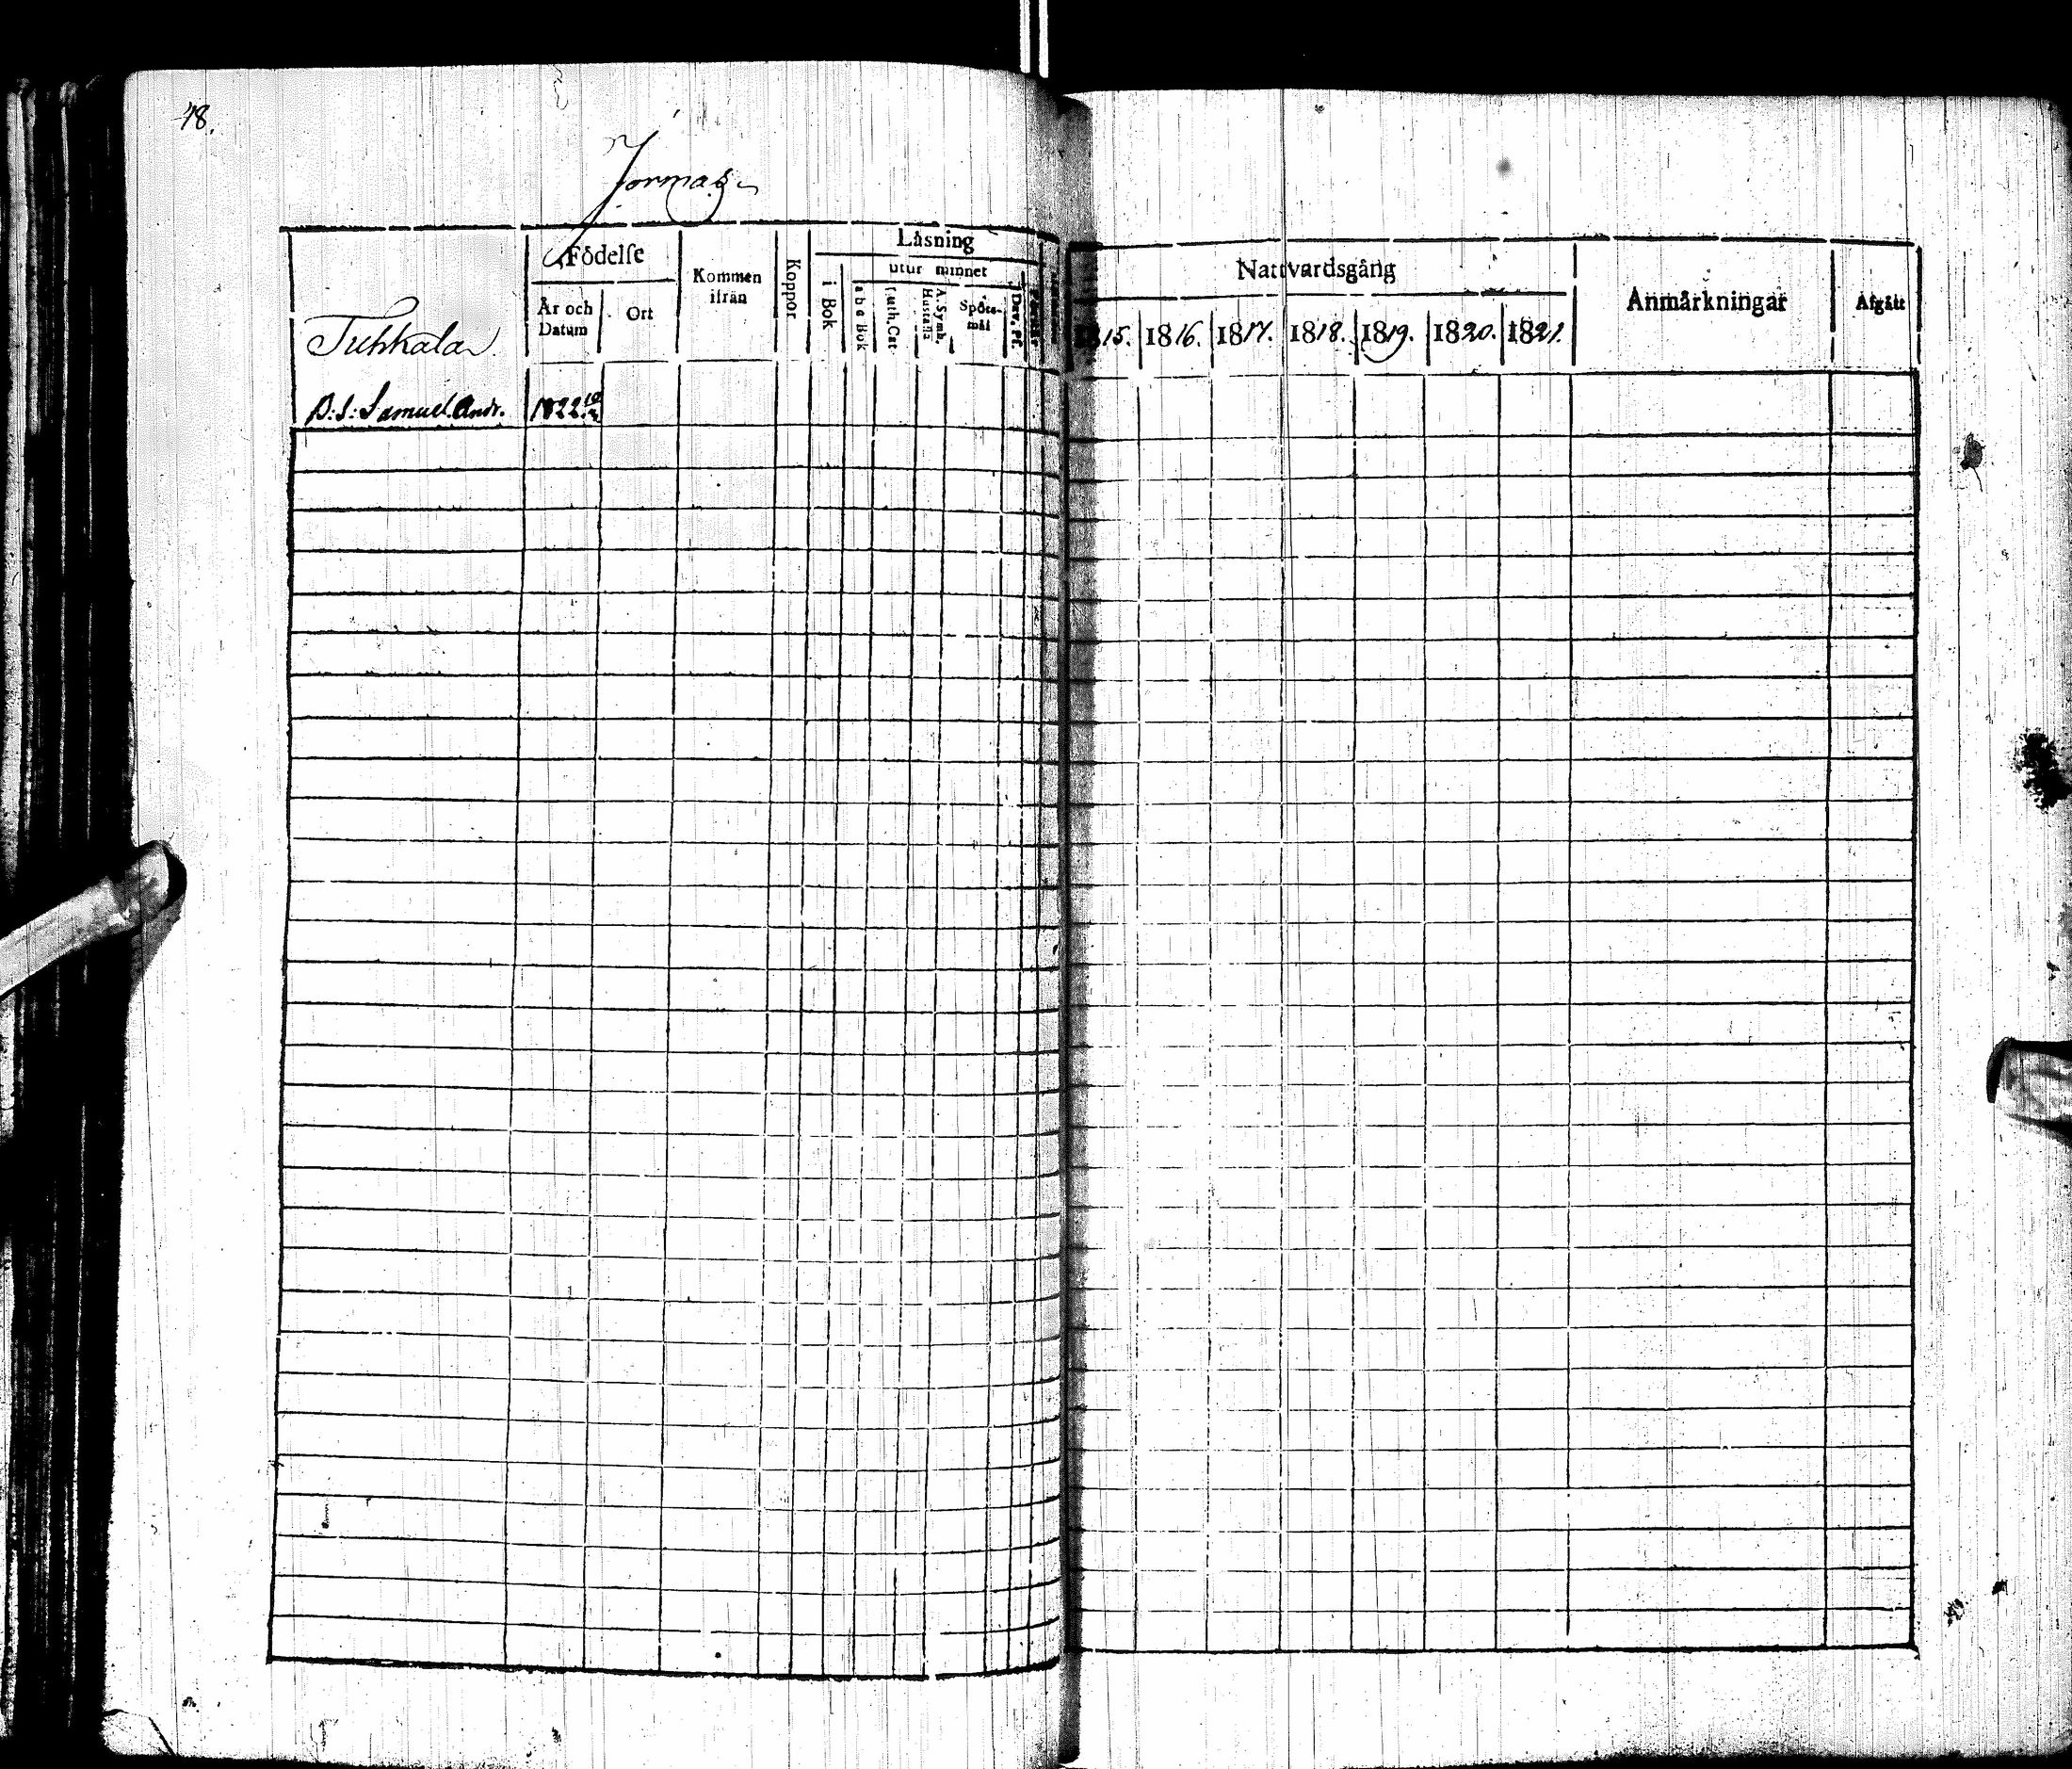 48.
Jormas
Födelse
Kommen ifrån
Koppor
Läsning
i Bok
utur minnet
a b c Bok
Luth. Cat
A. Symb.
Hustafla
Spörs-mål
Dav. Ps
År och Datum
Ort
Tuhkala
B: S: Samuel Andr. 1822 10/3
Nattvardsgång
Anmärkningar
Afgått
1815. 1816. 1817. 1818. 1819. 1820. 1821.